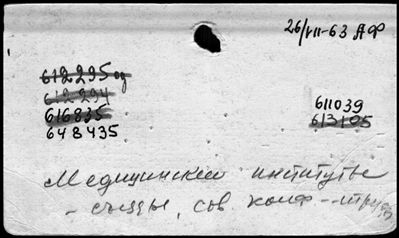 26/VII-63 АФ
612295 од
612294
616835
648435
611039
613105
Медицинские институты
- съезды, сов. конф. - труды